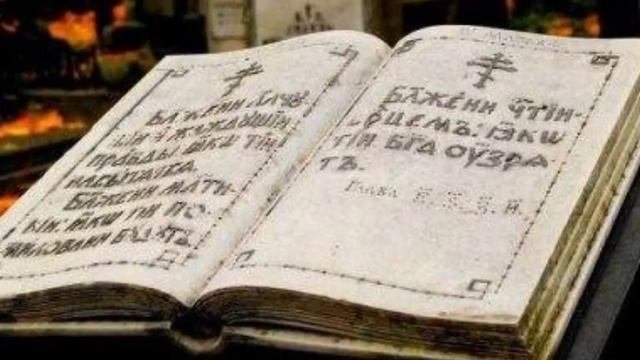 БЛ҃ЖЕНИ АЛЧУ-
ЩІИ И ЖАЖДУЩІИ
ПРАВДЫ ІАКѠ ТІИ
НАСЫТАТСА.
БЛ҃ЖЕНИ МЛ҃ТИ-
ВІИ: ІАКѠ ТІИ ПО-
МИЛОВАНИ БУДУТЪ.
БЛ҃ЖЕНИ Ч҃ТІИ-
СРЦЕМЪ: ІАКѠ
ТІИ БГ҃А ОУЗРА
ТЪ.
Глава